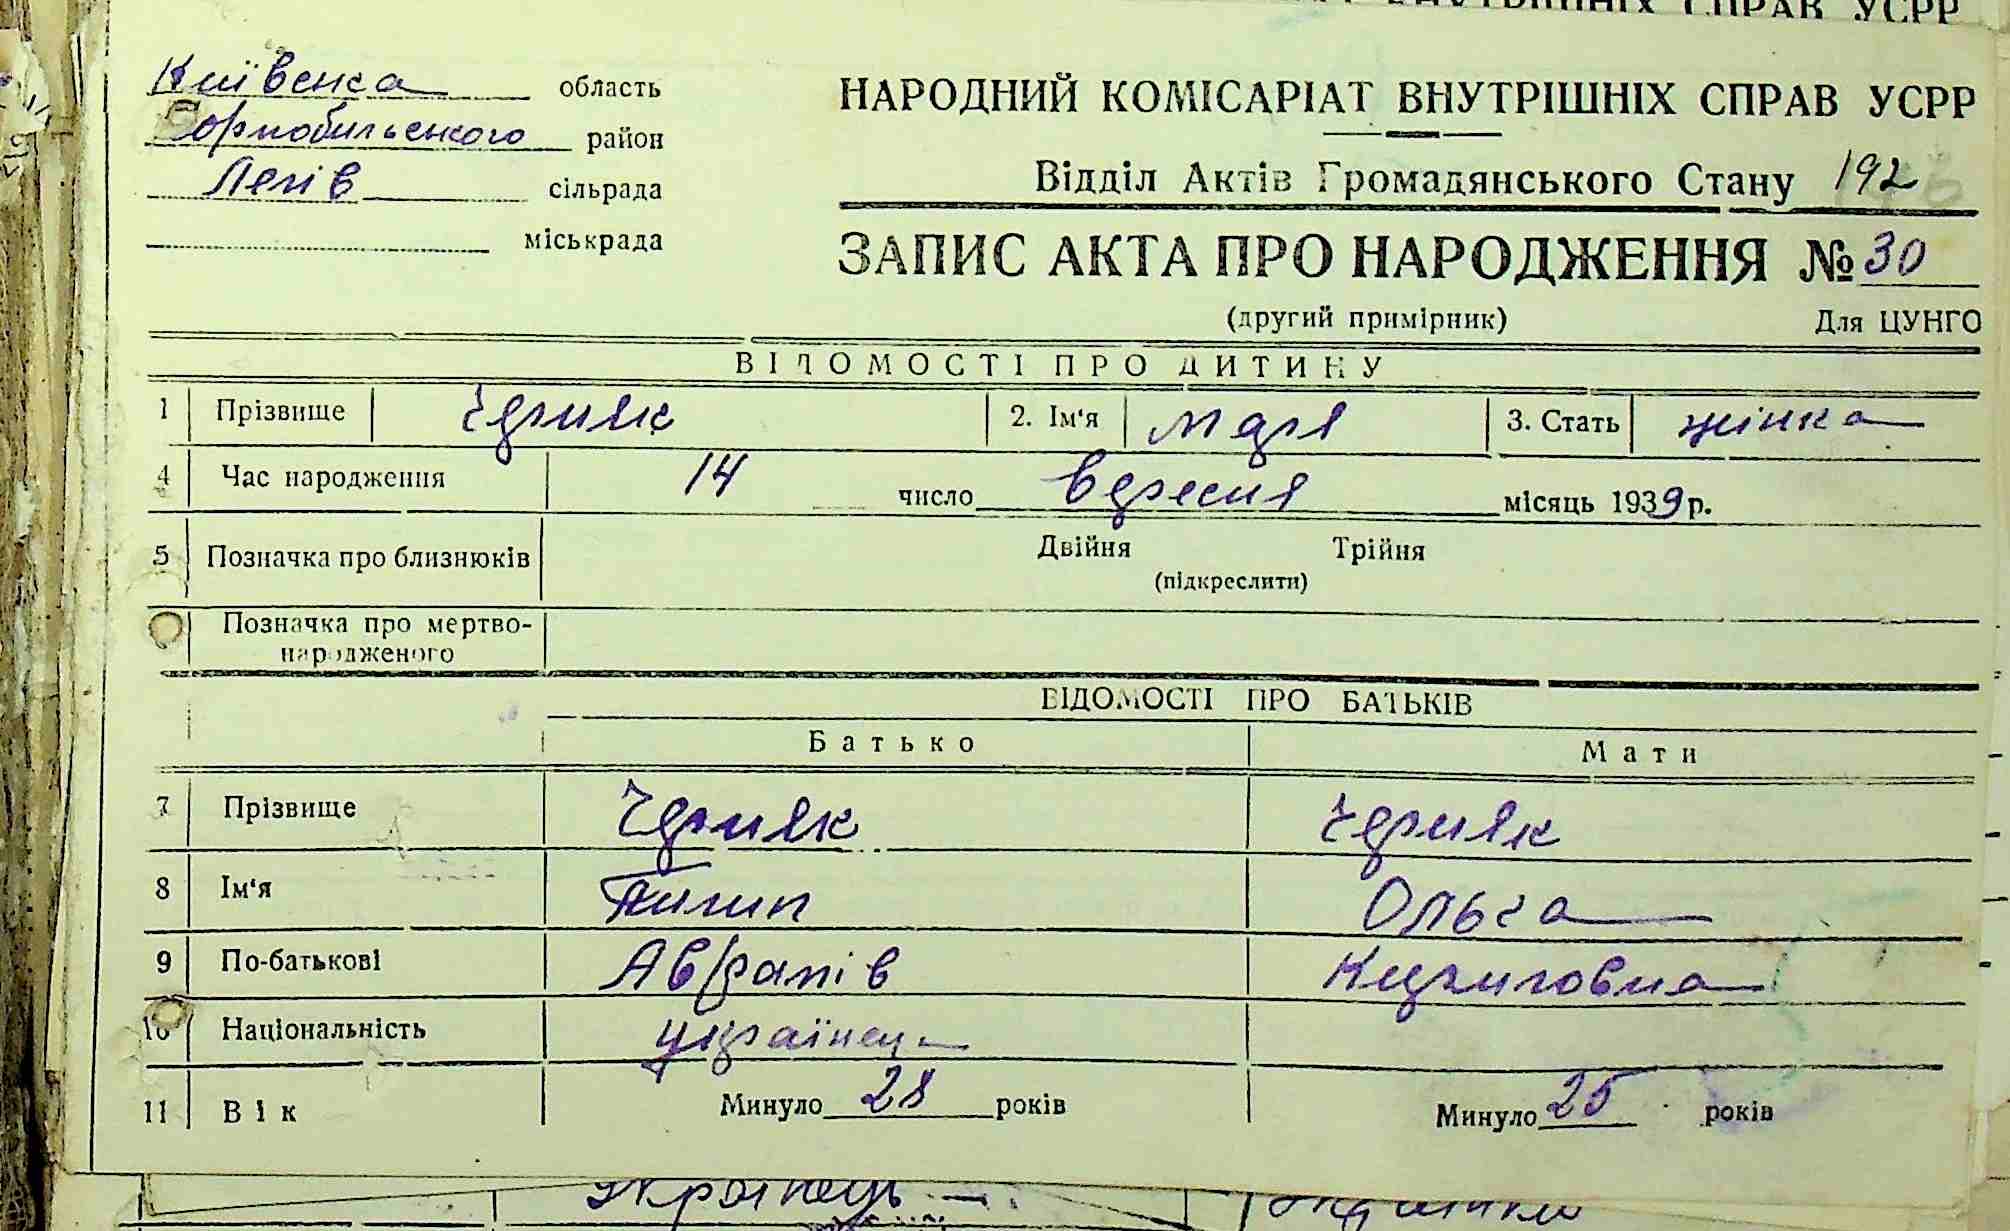 ВНУТРІШНІХ СПРАВ УСРР
Київська область
Чорнобильського район
Лелів сільрада
міськрада
НАРОДНИЙ КОМІСАРІАТ ВНУТРІШНІХ СПРАВ УСРР
Відділ Актів Громадянського Стану 192
ЗАПИС АКТА ПРО НАРОДЖЕННЯ № 30
(другий примірник) Для ЦУНГО
ВІДОМОСТІ ПРО ДИТИНУ
1 Прізвище Черняк 2. Ім'я Марія 3. Стать жінка
4 Час народження 14 число вересня місяць 1939 р.
5 Позначка про близнюків Двійня Трійня
(підкреслити)
Позначка про мертво-
народженого
ВІДОМОСТІ ПРО БАТЬКІВ
Батько Мати
7 Прізвище Черняк Черняк
8 Ім'я Пилип Ольга
9 По-батькові Аврамів
10 Національність українець
11 Вік Минуло 28 років Минуло 25 років
Українець